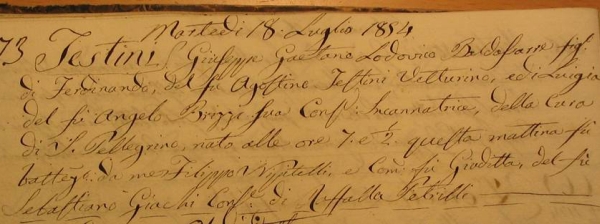 Martedi 18. Luglio 1854
73 Testini Giuseppe Gaetano Lodovico Baldassarre fig:
di Ferdinando, del fù Agostino Testini Vetturino, e di Luigia
del fù Angelo Brizzi sua Cons: Incannatrice, della Cura
di S. Pellegrino, nato alle ore 7. e 2. questa mattina fù
battegg: da me Filippo e Com: fù Giuditta, del fù
Sebastiano Giachi Cons: di Raffalla Petrilli